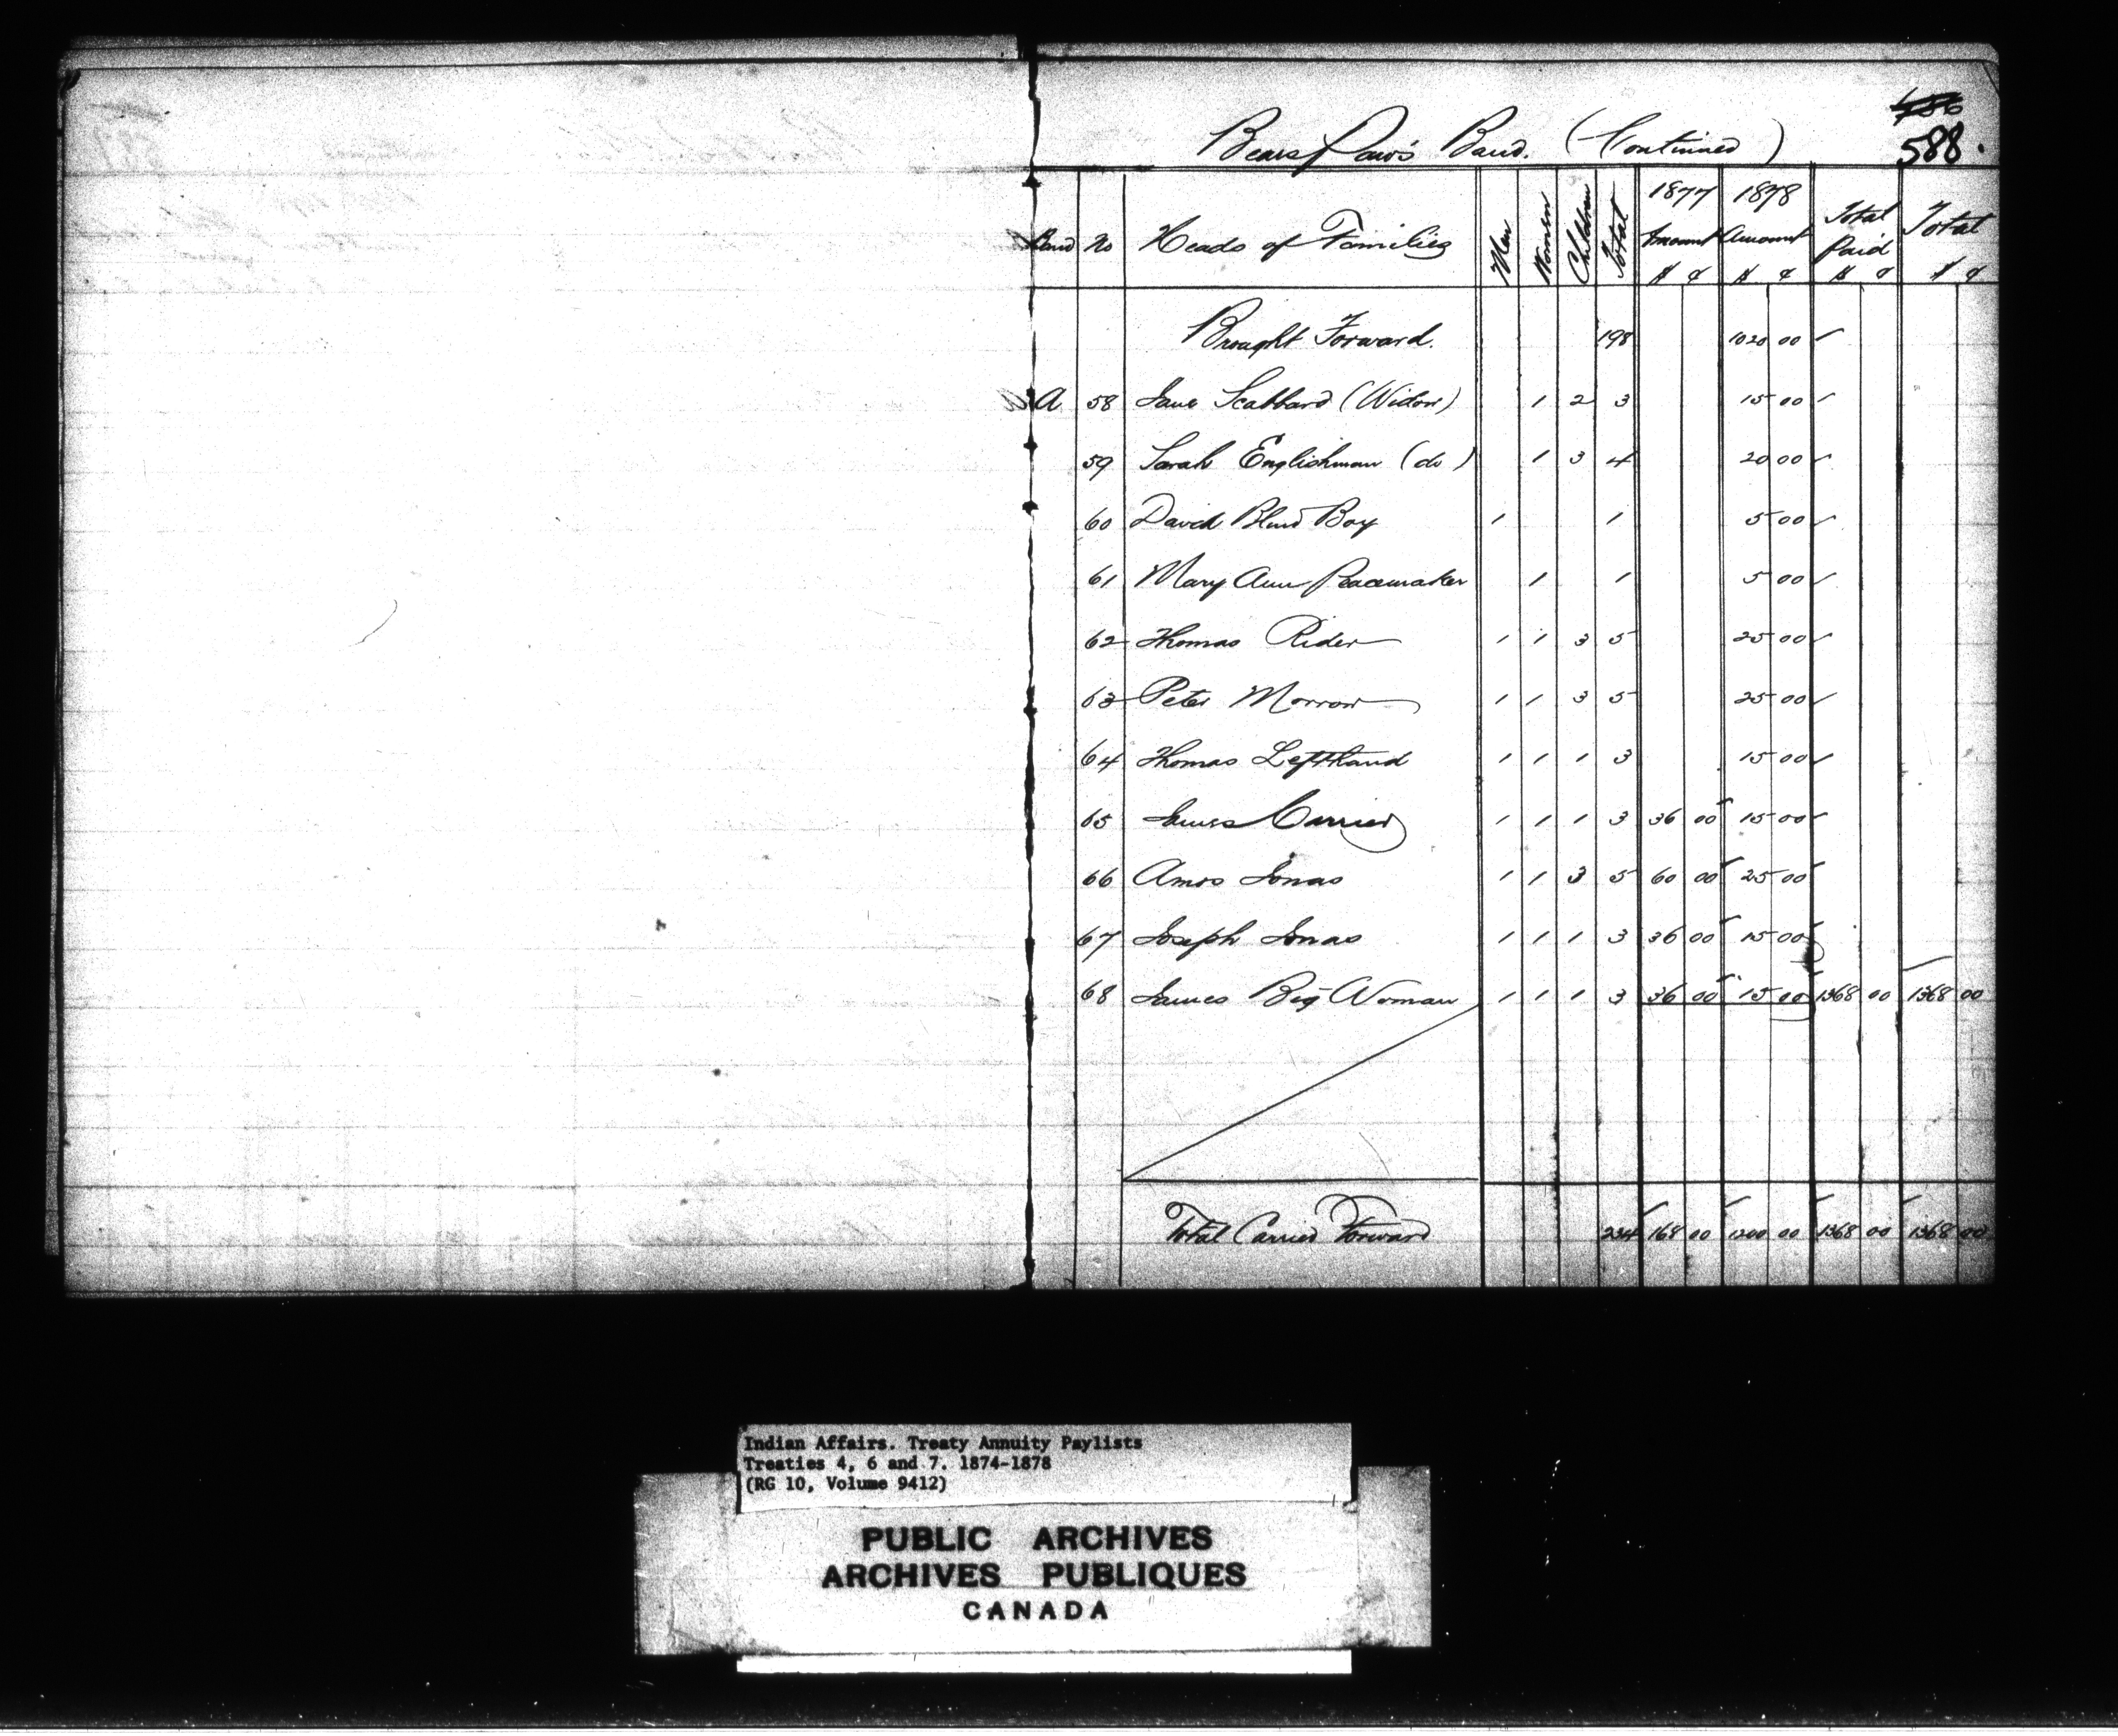 486
Bears Paw's Band. (Continued) 588.
Band No Heads of Families Men Women Children Total 1877 Amount $ ¢ 1878 Amount $ ¢ Total Paid $ ¢ Total $ ¢
Brought Forward. 198 1020 00 ✓
A 58 Jane Scabbard (Widow) 1 2 3 15 00 ✓
59 Sarah Englishman (do) 1 3 4 20 00 ✓
60 David Blind Boy 1 1 5 00 ✓
61 Mary Ann Peacemaker 1 1 5 00 ✓
62 Thomas Rider 1 1 3 5 25 00 ✓
63 Peter Morrow 1 1 3 5 25 00 ✓
64 Thomas Lefthand 1 1 1 3 15 00 ✓
65 James Carried 1 1 1 3 36 00 ✓ 15 00 ✓
66 Amos Jonas 1 1 3 5 60 00 ✓ 25 00 ✓
67 Joseph Jonas 1 1 1 3 36 00 ✓ 15 00 ✓
68 James Big Woman 1 1 1 3 36 00 ✓ 15 00 ✓ 1368 00 1368 00
Total Carried Forward 234 168 00 1200 00 1368 00 1368 00
Indian Affairs. Treaty Annuity Paylists
Treaties 4, 6 and 7. 1874-1878
(RG 10, Volume 9412)
PUBLIC ARCHIVES
ARCHIVES PUBLIQUES
CANADA